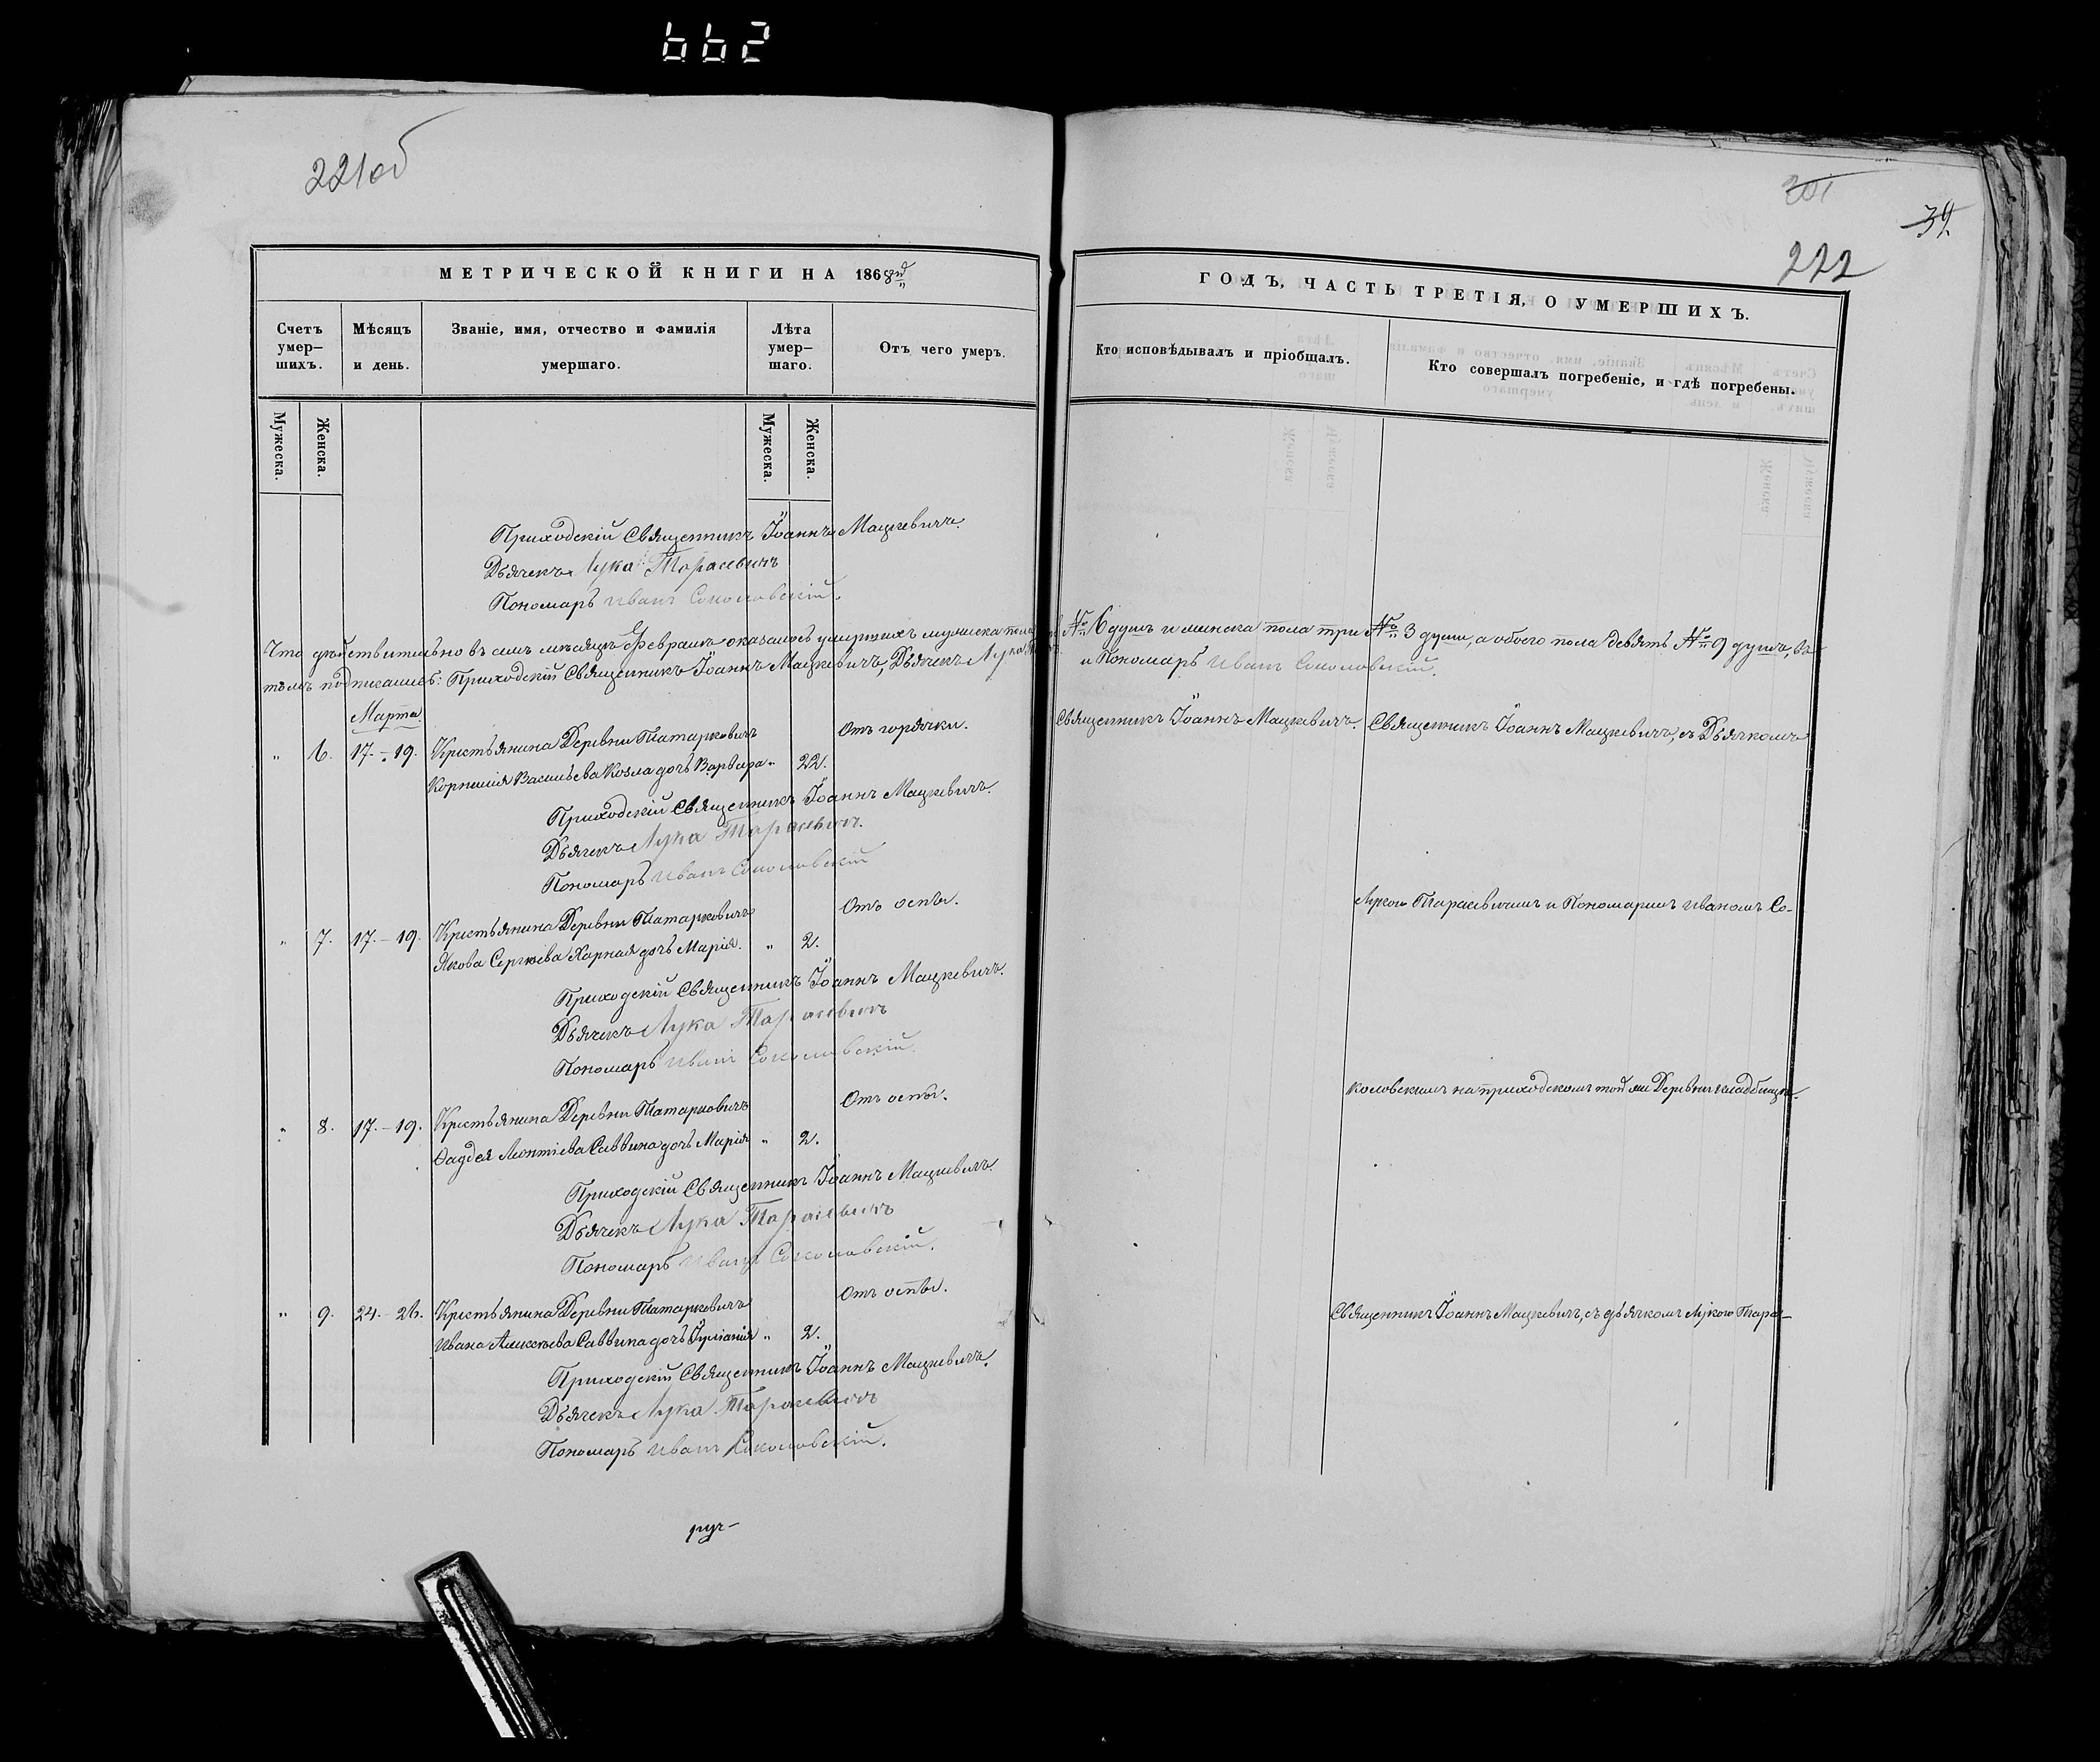 662
221об
301
39.
222
МЕТРИЧЕСКОЙ КНИГИ НА 1868й
ГОДЪ, ЧАСТЬ ТРЕТІЯ, О УМЕРШИХЪ.
Счетъ умер–шихъ.
Мѣсяцъ и день.
Званіе, имя, отчество и фамилія умершаго.
Лѣта умер–шаго.
Отъ чего умеръ.
Кто исповѣдывалъ и пріобщалъ.
Кто совершалъ погребеніе, и гдѣ погребены.
Мужеска.
Женска.
Мужеска.
Женска.
Приходскій Священникъ Іоаннъ Мацкевичъ.
Дьячекъ Лука Тарасевичъ
Пономарь Иванъ Соколовскій.
Что дѣйствительно въ семъ мѣсяцѣ Февралѣ оказалось умершихъ мужеска пола № 6 душъ и женска пола три № 3 души, а обоего пола девять № 9 душъ, въ
томъ подписались: Приходскій Священникъ Іоаннъ Мацкевичъ, Дьячекъ Лука и Пономарь Иванъ Соколовскій.
Марта
„ 6. 17.–19. Крестьянина Деревни Татарковичъ
Корнилія Васильева Козла дочь Варвара „ 22.
Отъ горячки.
Священникъ Іоаннъ Мацкевичъ.
Священникъ Іоаннъ Мацкевичъ, съ Дьячкомъ
Приходскій Священникъ Іоаннъ Мацкевичъ.
Дьячекъ Лука Тарасевичъ.
Пономарь Иванъ Соколовскій
„ 7. 17.–19. Крестьянина Деревни Татарковичъ
Якова Сергѣева Харная дочь Марія. „ 2.
Отъ оспы.
Лукою Тарасевичемъ и Пономаремъ Иваномъ Со-
Приходскій Священникъ Іоаннъ Мацкевичъ.
Дьячекъ Лука Тарасевичъ
Пономарь Иванъ Соколовскій
„ 8. 17.–19. Крестьянина Деревни Татарковичъ
Фадея Леонтіева Саввина дочь Марія „ 2.
Отъ оспы.
коловскимъ на приходскомъ той же Деревни кладбищѣ.
Приходскій Священникъ Іоаннъ Мацкевичъ.
Дьячекъ Лука Тарасевичъ
Пономарь Иванъ Соколовскій.
„ 9. 24.–26. Крестьянина Деревни Татарковичъ
Ивана Алексѣева Саввина дочь Іуліанія „ 2.
Отъ оспы.
Священникъ Іоаннъ Мацкевичъ, съ дьячкомъ Лукою Тара-
Приходскій Священникъ Іоаннъ Мацкевичъ.
Дьячекъ Лука Тарасевичъ
Пономарь Иванъ Соколовскій.
руч–